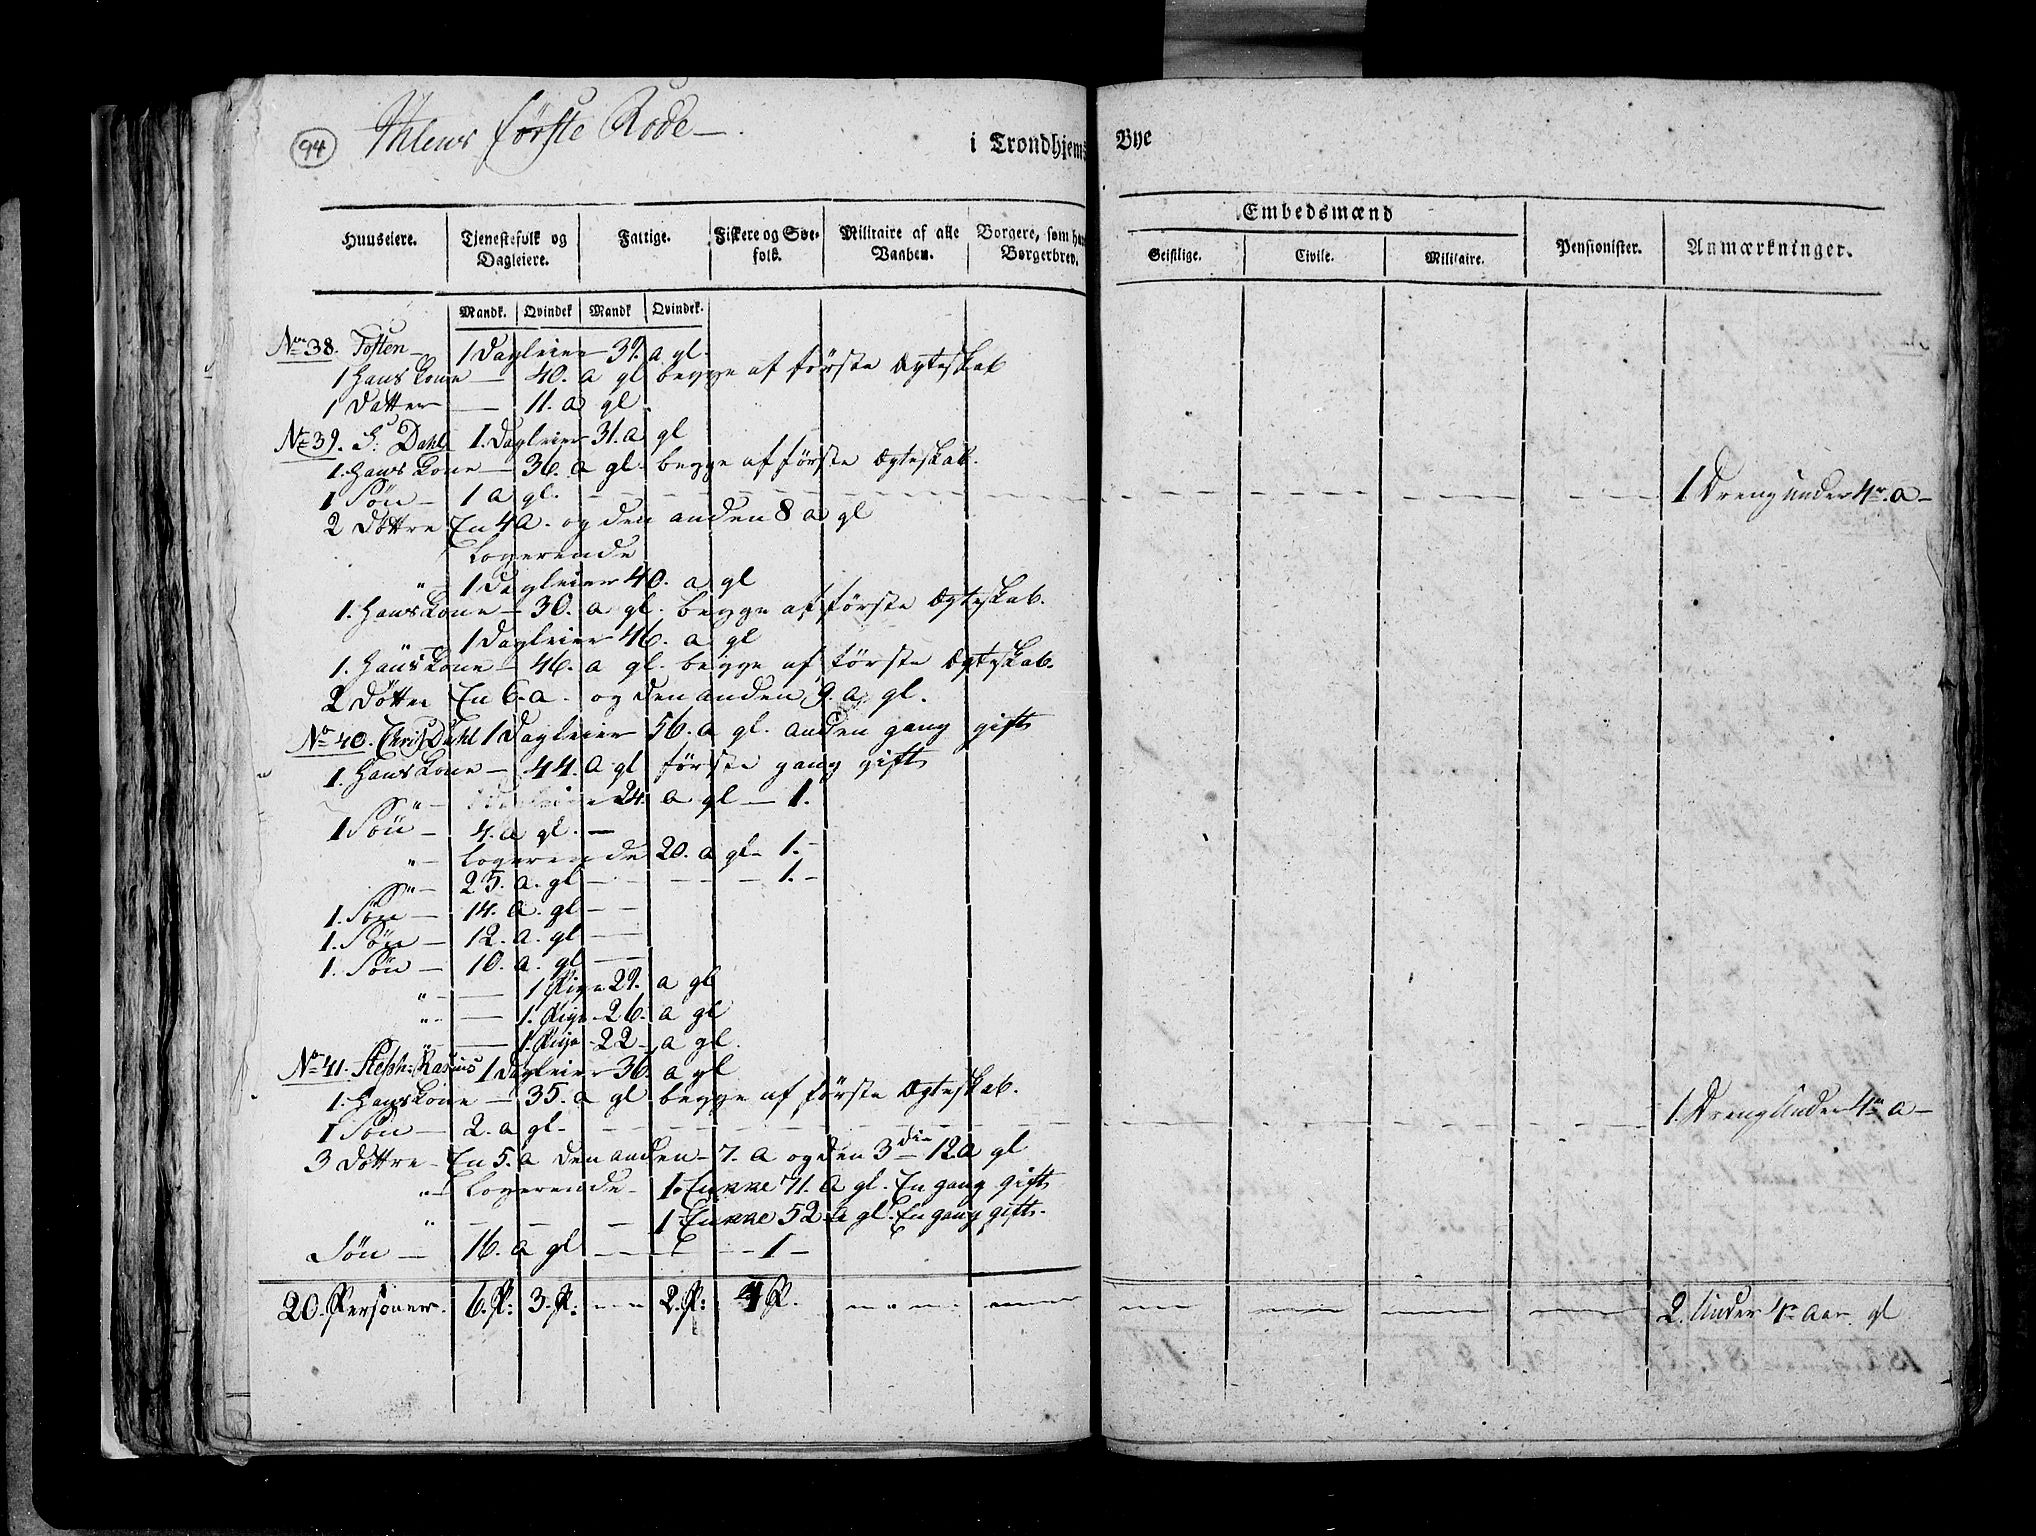 94
Ihlens første Rode
i Trondhjems Bye
Huuseiere. Tjenestefolk og Dagleiere. Fattige. Fiskere og Søefolk. Militaire af alle Vaaben. Borgere, som have Borgerbrev. Embedsmænd Pensionister. Anmærkninger.
Geistlige. Civile. Militaire.
Mandk. Qvindek Mandk Qvindek.
No 38. Tosten 1 Dagleier 39. a gl.
1 Hans Kone — 40. a gl begge af første Ægteskab
1 Datter — 11. a gl.
No 39. J: Dahl 1. Dagleier 31. a gl
1. Hans Kone — 36. a gl. begge af første Ægteskab.
1 Søn — 1 a gl. — — — 1 Dreng under 4re. a —
2 Døttre En 4 a. og den anden 8 a gl
Logerende
" — 1 Dagleier 40. a gl
1. Hans Kone — 30. a gl. begge af første Ægteskab.
" 1 Dagleier 46. a gl
1. Hans Kone — 46. a gl. begge af første Ægteskab.
2 Døtter En 6. a. og den anden 9. a gl.
No 40. Chris Dahl 1 Dagleier 56. a gl. anden gang gift
1. Hans Kone — 44. a gl første gang gift
" — 24. a gl — 1.
1 Søn — 4. a gl. —
" — Logerende 20. a gl — 1. —
" — 25. a. gl — — — 1. —
1. Søn — 14. a. gl — —
1. Søn — 12. a. gl — —
1. Søn — 10. a. gl — —
" — — 1 Pige 29. a gl
" — — 1. Pige 26. a gl
" — — 1. Pige 22 — a gl.
No 41. Steph: Rasmus 1 Dagleier 36. a gl
1. Hans Kone — 35. a gl begge af første Ægteskab.
1 Søn — 2. a gl — — — 1. Dreng Under 4re a —
3 Døttre — En 5. a den anden — 7. a og den 3die 12 a gl
" — Logerende — 1. Enkke 71. a gl. En gang gift
" — — — 1 Enkke 52. a gl. En gang gift.
Søn — 16. a gl — — — 1 —
20. Personer. 6. P: 3. P: — 2. P: 4 P. — — — — — — 2. Under 4re Aar gl